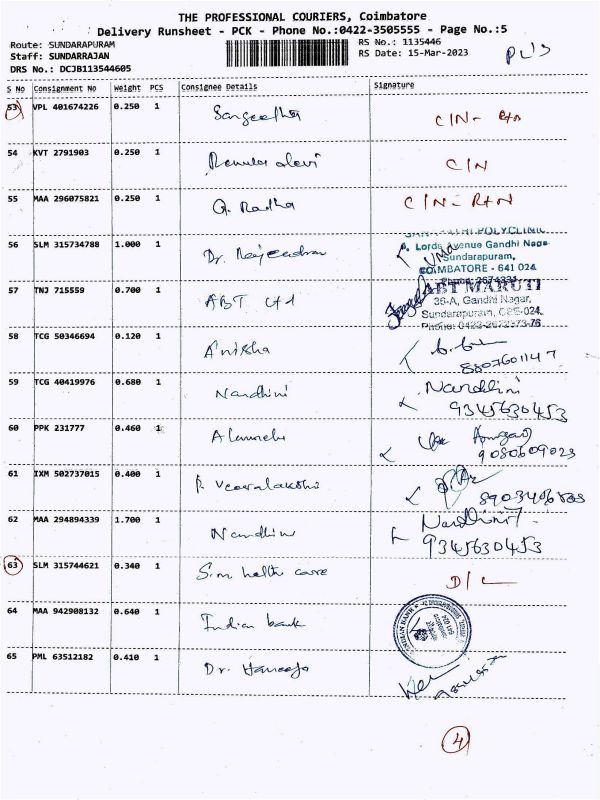 THE PROFESSIONAL COURIERS, Coimbatore
Delivery Runsheet - PCK - Phone No.:0422-3505555 - Page No.:5
Route: SUNDARAPURAM
Staff: SUNDARRAJAN
DRS No.: DCJB113544605
RS No.: 1135446
RS Date: 15-Mar-2023
S No Consignment No Weight PCS Consignee Details Signature
53 VPL 401674226 0.250 1 Sangeetha C/N -
54 KVT 2791903 0.250 1 Renuka devi C/N
55 MAA 296075821 0.250 1 Radha C/N - RtN
56 SLM 315734788 1.000 1 Dr. Rajendran
POLYCLINIC
Lords Avenue Gandhi Nagar
Sundarapuram,
COIMBATORE - 641 024
57 TNJ 715559 0.700 1 ABT Ltd
ABT MARUTI
36-A, Gandhi Nagar,
Sundarapuram, CBE-024.
Phone: 0422-2672373-76
58 TCG 50346694 0.120 1 Anisha
8807601147
59 TCG 40419976 0.680 1 Nandhini Nandhini
9345630453
60 PPK 231777 0.460 1
9080609023
61 IXM 502737015 0.400 1 Veeralakshi
62 MAA 294894339 1.700 1 Nandhini Nandhini
9345630453
63 SLM 315744621 0.340 1 S.m helth care D/L
64 MAA 942908132 0.640 1 Indian bank
INDIAN BANK
65 PML 63512182 0.410 1 Dr.
4